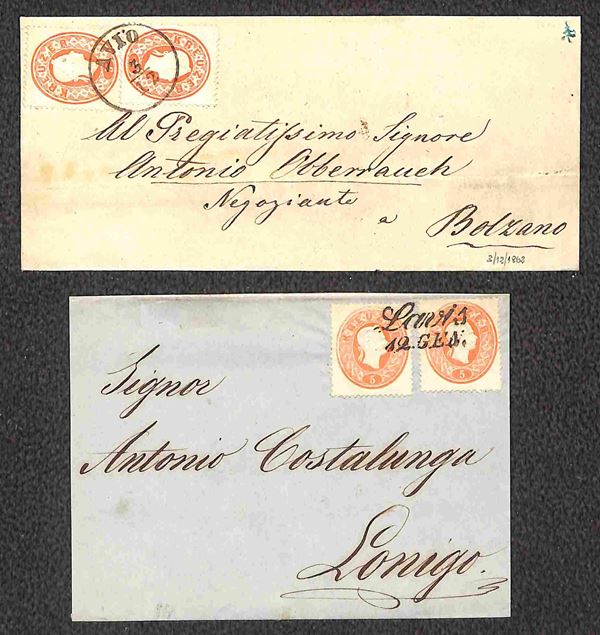 KREUZER KREUZER
AVIO
3/12
Al Pregiatissimo Signore
Antonio Obberrauch
Negoziante
a
Bolzano
3/12/1862
KREUZER KREUZER
Lavis
12. GEN.
5 5
Signor
Antonio Costalunga
Lonigo.